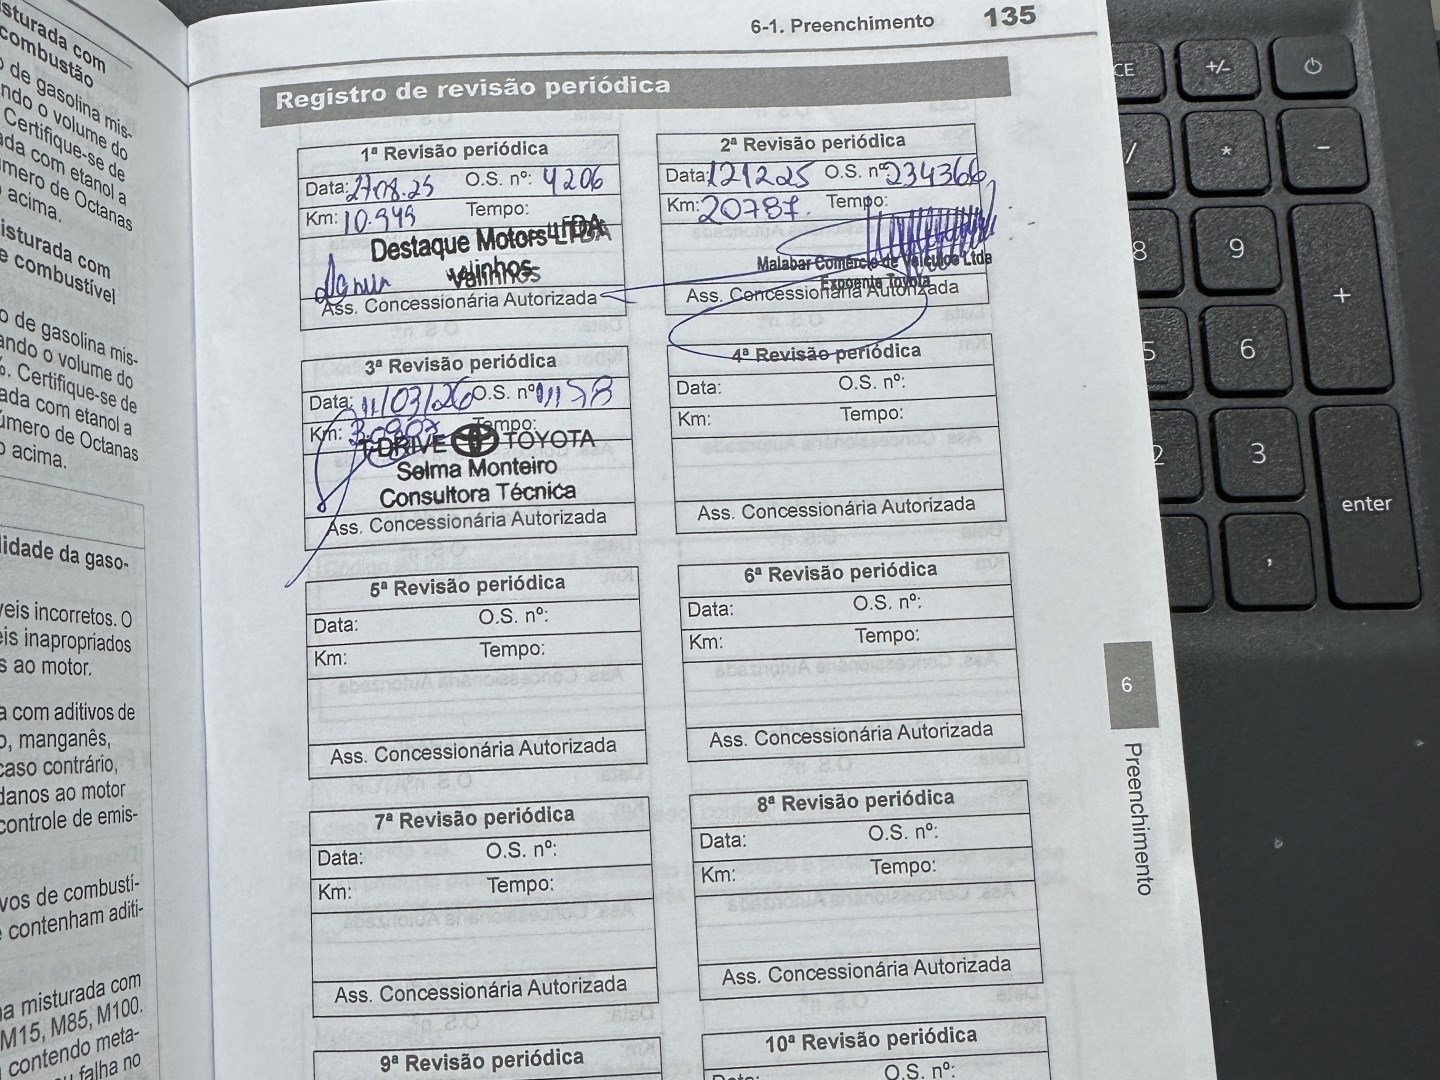 isturada com
combustão
o de gasolina mis-
ndo o volume do
Certifique-se de
ada com etanol a
úmero de Octanas
o acima.
isturada com
e combustível
o de gasolina mis-
ando o volume do
%. Certifique-se de
ada com etanol a
úmero de Octanas
o acima.
lidade da gaso-
veis incorretos. O
eis inapropriados
s ao motor.
a com aditivos de
o, manganês,
caso contrário,
danos ao motor
controle de emis-
vos de combustí-
contenham aditi-
na misturada com
M15, M85, M100.
contendo meta-
falha no
6-1. Preenchimento 135
Registro de revisão periódica
1ª Revisão periódica
Data: 27.08.25 O.S. nº: 4206
Km: 10.949 Tempo:
Destaque Motors LTDA
Valinhos
Ass. Concessionária Autorizada
2ª Revisão periódica
Data: 121225 O.S. nº 234366
Km: 20787. Tempo:
Malabar Comércio de Veículos Ltda
Expoente Toyota
Ass. Concessionária Autorizada
3ª Revisão periódica
Data: 11/03/26 O.S. nº
Km: Tempo:
T-DRIVE TOYOTA
Selma Monteiro
Consultora Técnica
Ass. Concessionária Autorizada
4ª Revisão periódica
Data: O.S. nº:
Km: Tempo:
Ass. Concessionária Autorizada
5ª Revisão periódica
Data: O.S. nº:
Km: Tempo:
Ass. Concessionária Autorizada
6ª Revisão periódica
Data: O.S. nº:
Km: Tempo:
Ass. Concessionária Autorizada
7ª Revisão periódica
Data: O.S. nº:
Km: Tempo:
Ass. Concessionária Autorizada
8ª Revisão periódica
Data: O.S. nº:
Km: Tempo:
Ass. Concessionária Autorizada
9ª Revisão periódica
10ª Revisão periódica
Data: O.S. nº:
6
Preenchimento
CE +/-
/ * -
8 9
+
5 6
2 3
enter
,